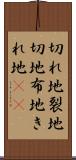 切れ地裂地
切地布地き
れ地